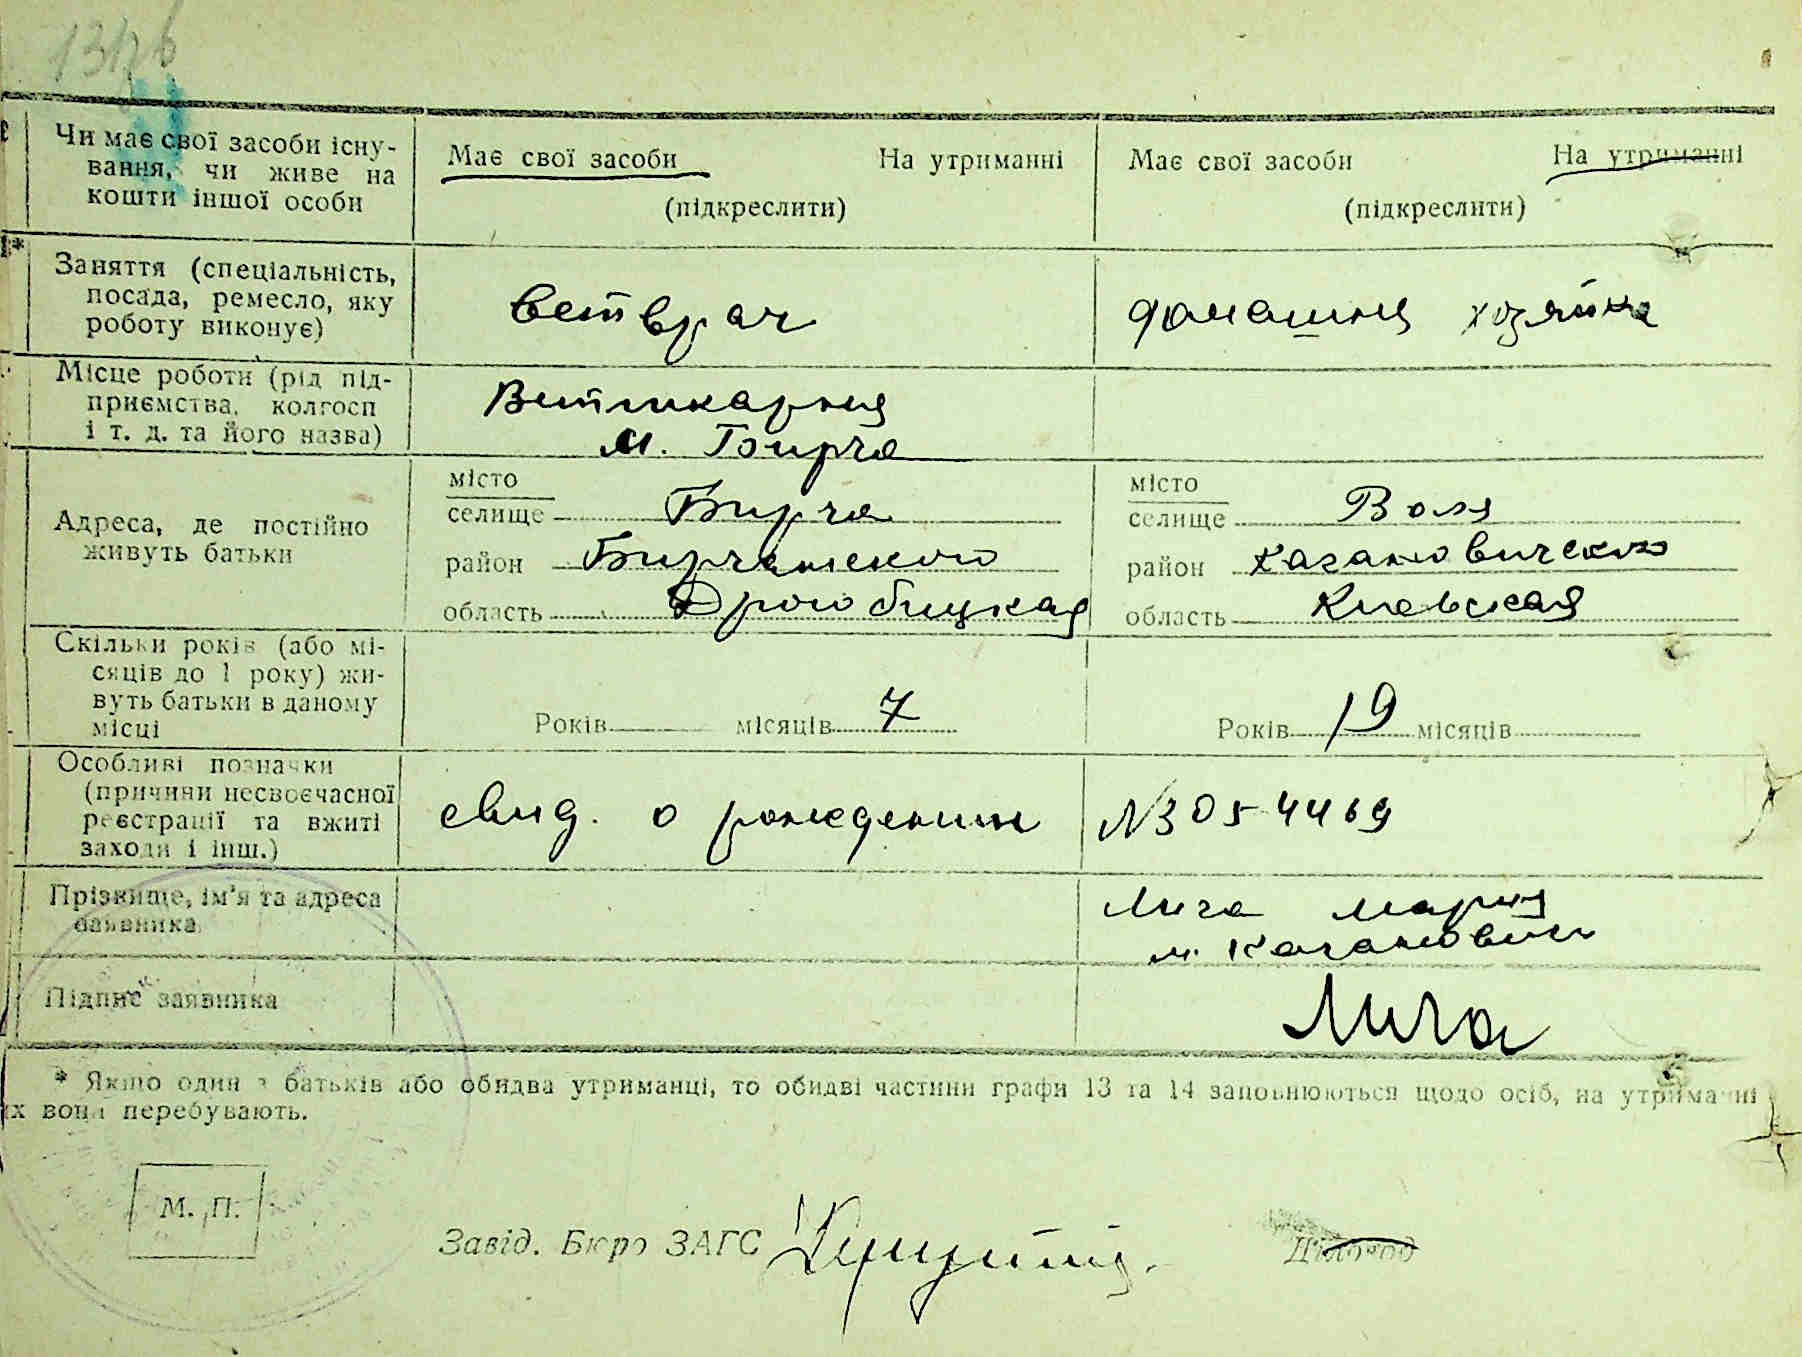 Чи має свої засоби існу-
вання, чи живе на
кошти іншої особи
Має свої засоби На утриманні
(підкреслити)
Має свої засоби На утриманні
(підкреслити)
Заняття (спеціальність,
посада, ремесло, яку
роботу виконує)
Ветврач
домашняя хозяйка
Місце роботи (рід під-
приємства, колгосп
і т. д. та його назва)
м. Бирча
Адреса, де постійно
живуть батьки
місто
селище Бирча
район Бирчанского
область Дрогобицкая
місто
селище Воля
район Кагановического
область Киевская
Скільки років (або мі-
сяців до 1 року) жи-
вуть батьки в даному
місці
Років місяців 7
Років 19 місяців
Особливі позначки
(причини несвоєчасної
реєстрації та вжиті
заходи і інш.)
свид. о рождении
№3054469
Прізвище, ім'я та адреса
заявника
Лига Мария
м. Кагановичи
Підпис заявника
Лига
* Якщо один з батьків або обидва утриманці, то обидві частини графи 13 та 14 заповнюються щодо осіб, на утриманні
их вони перебувають.
М. П.
Завід. Бюро ЗАГС
Діловод